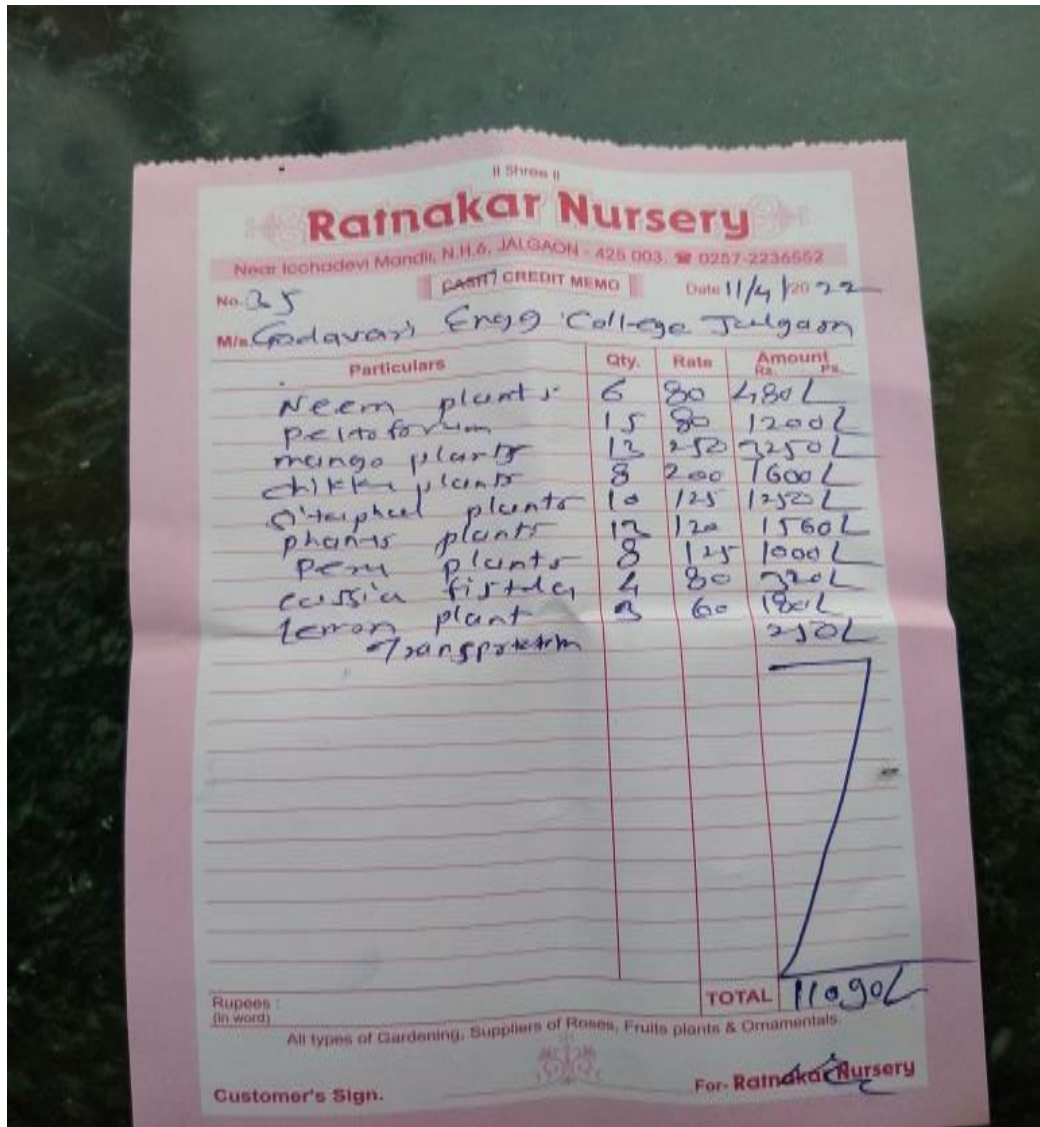 ॥ Shree ॥
Ratnakar Nursery
Near Icchadevi Mandir, N.H.6, JALGAON - 425 003. ☎ 0257-2236552
CASH / CREDIT MEMO
No. 35 Date 11/4/2022
M/s. Godavari Engg College Jalgaon
Particulars Qty. Rate Amount Rs. Ps.
Neem plants 6 80 480/-
peltoforum 15 80 1200/-
mango plants 13 250 3250/-
chikku plants 8 200 1600/-
sitaphal plants 10 125 1250/-
phanas plants 13 120 1560/-
Peru plants 8 125 1000/-
cassia fistula 4 80 320/-
lemon plant 3 60 180/-
Transportation 250/-
Rupees : (in word) TOTAL 11090/-
All types of Gardening, Suppliers of Roses, Fruits plants & Ornamentals
Customer's Sign. For- Ratnakar Nursery